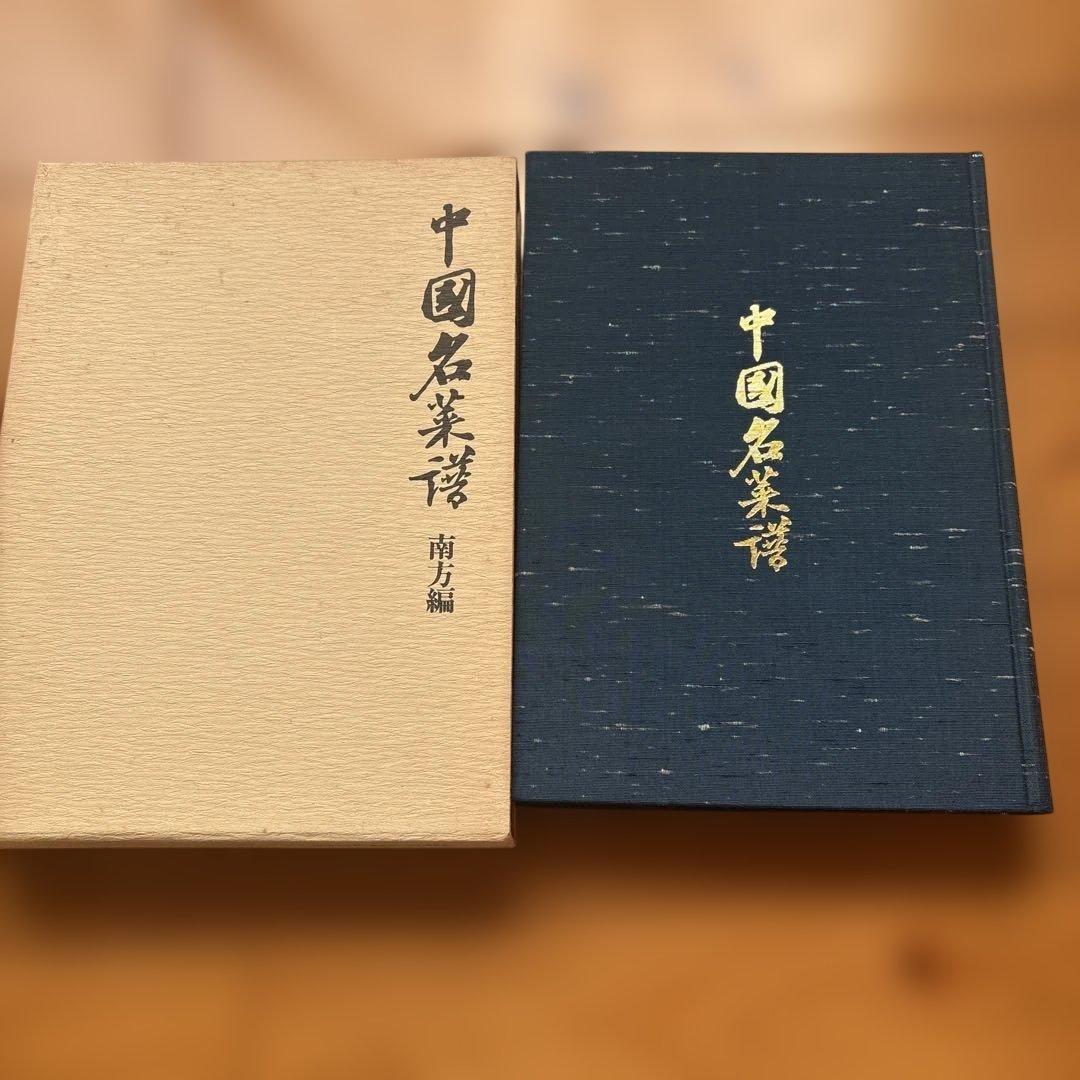 中國名菜谱
南方編
中國名菜谱